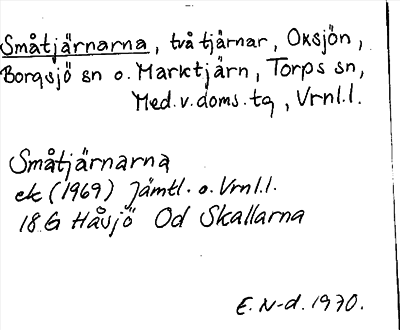 Småtjärnarna, två tjärnar, Oxsjön,
Borgsjö sn o. Marktjärn, Torps sn,
Med.v.doms.tg, Vrnl.l.
Småtjärnarna
ek (1969) Jämtl. o. Vrnl.l.
18.G Håsjö Od Skallarna
E. N-d. 1970.